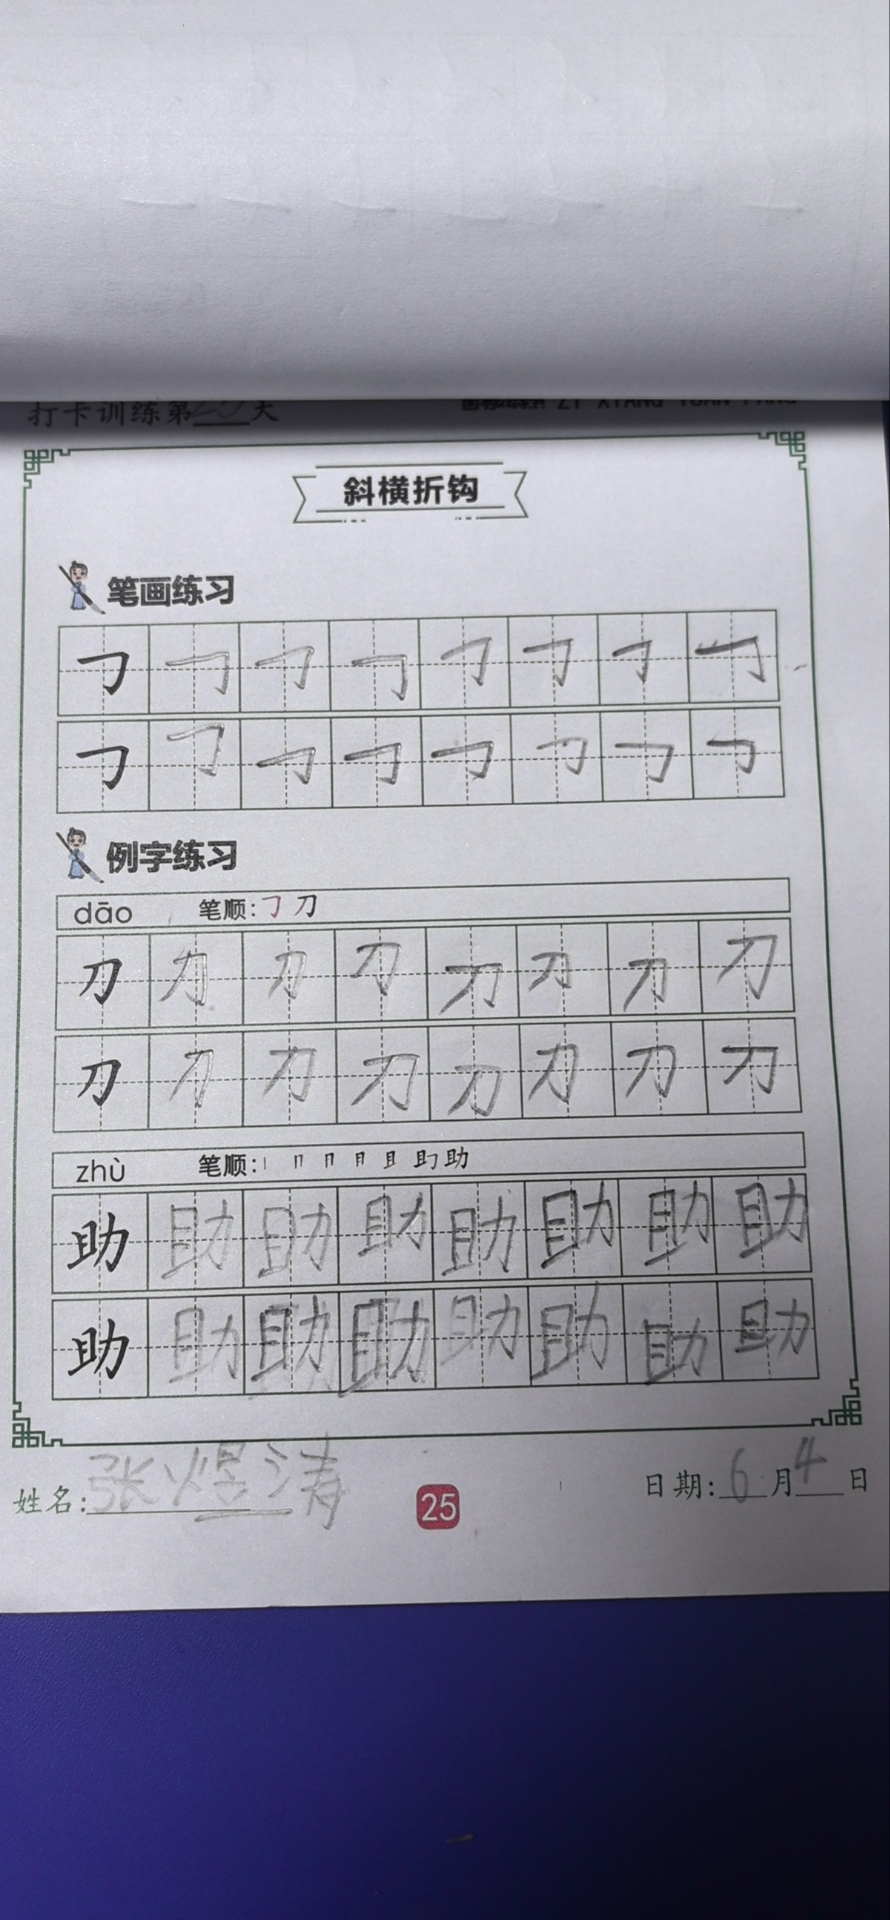 打卡训练第25天
斜横折钩
笔画练习
㇆ ㇆ ㇆ ㇆ ㇆ ㇆ ㇆ ㇆
㇆ ㇆ ㇆ ㇆ ㇆ ㇆ ㇆ ㇆
例字练习
dāo 笔顺:㇆ 刀
刀 刀 刀 刀 刀 刀 刀 刀
刀 刀 刀 刀 刀 刀 刀 刀
zhù 笔顺:丨 冂 冂 月 且 助
助 助 助 助 助 助 助 助
助 助 助 助 助 助 助 助
姓名:张煜涛
25
日期:6月4日